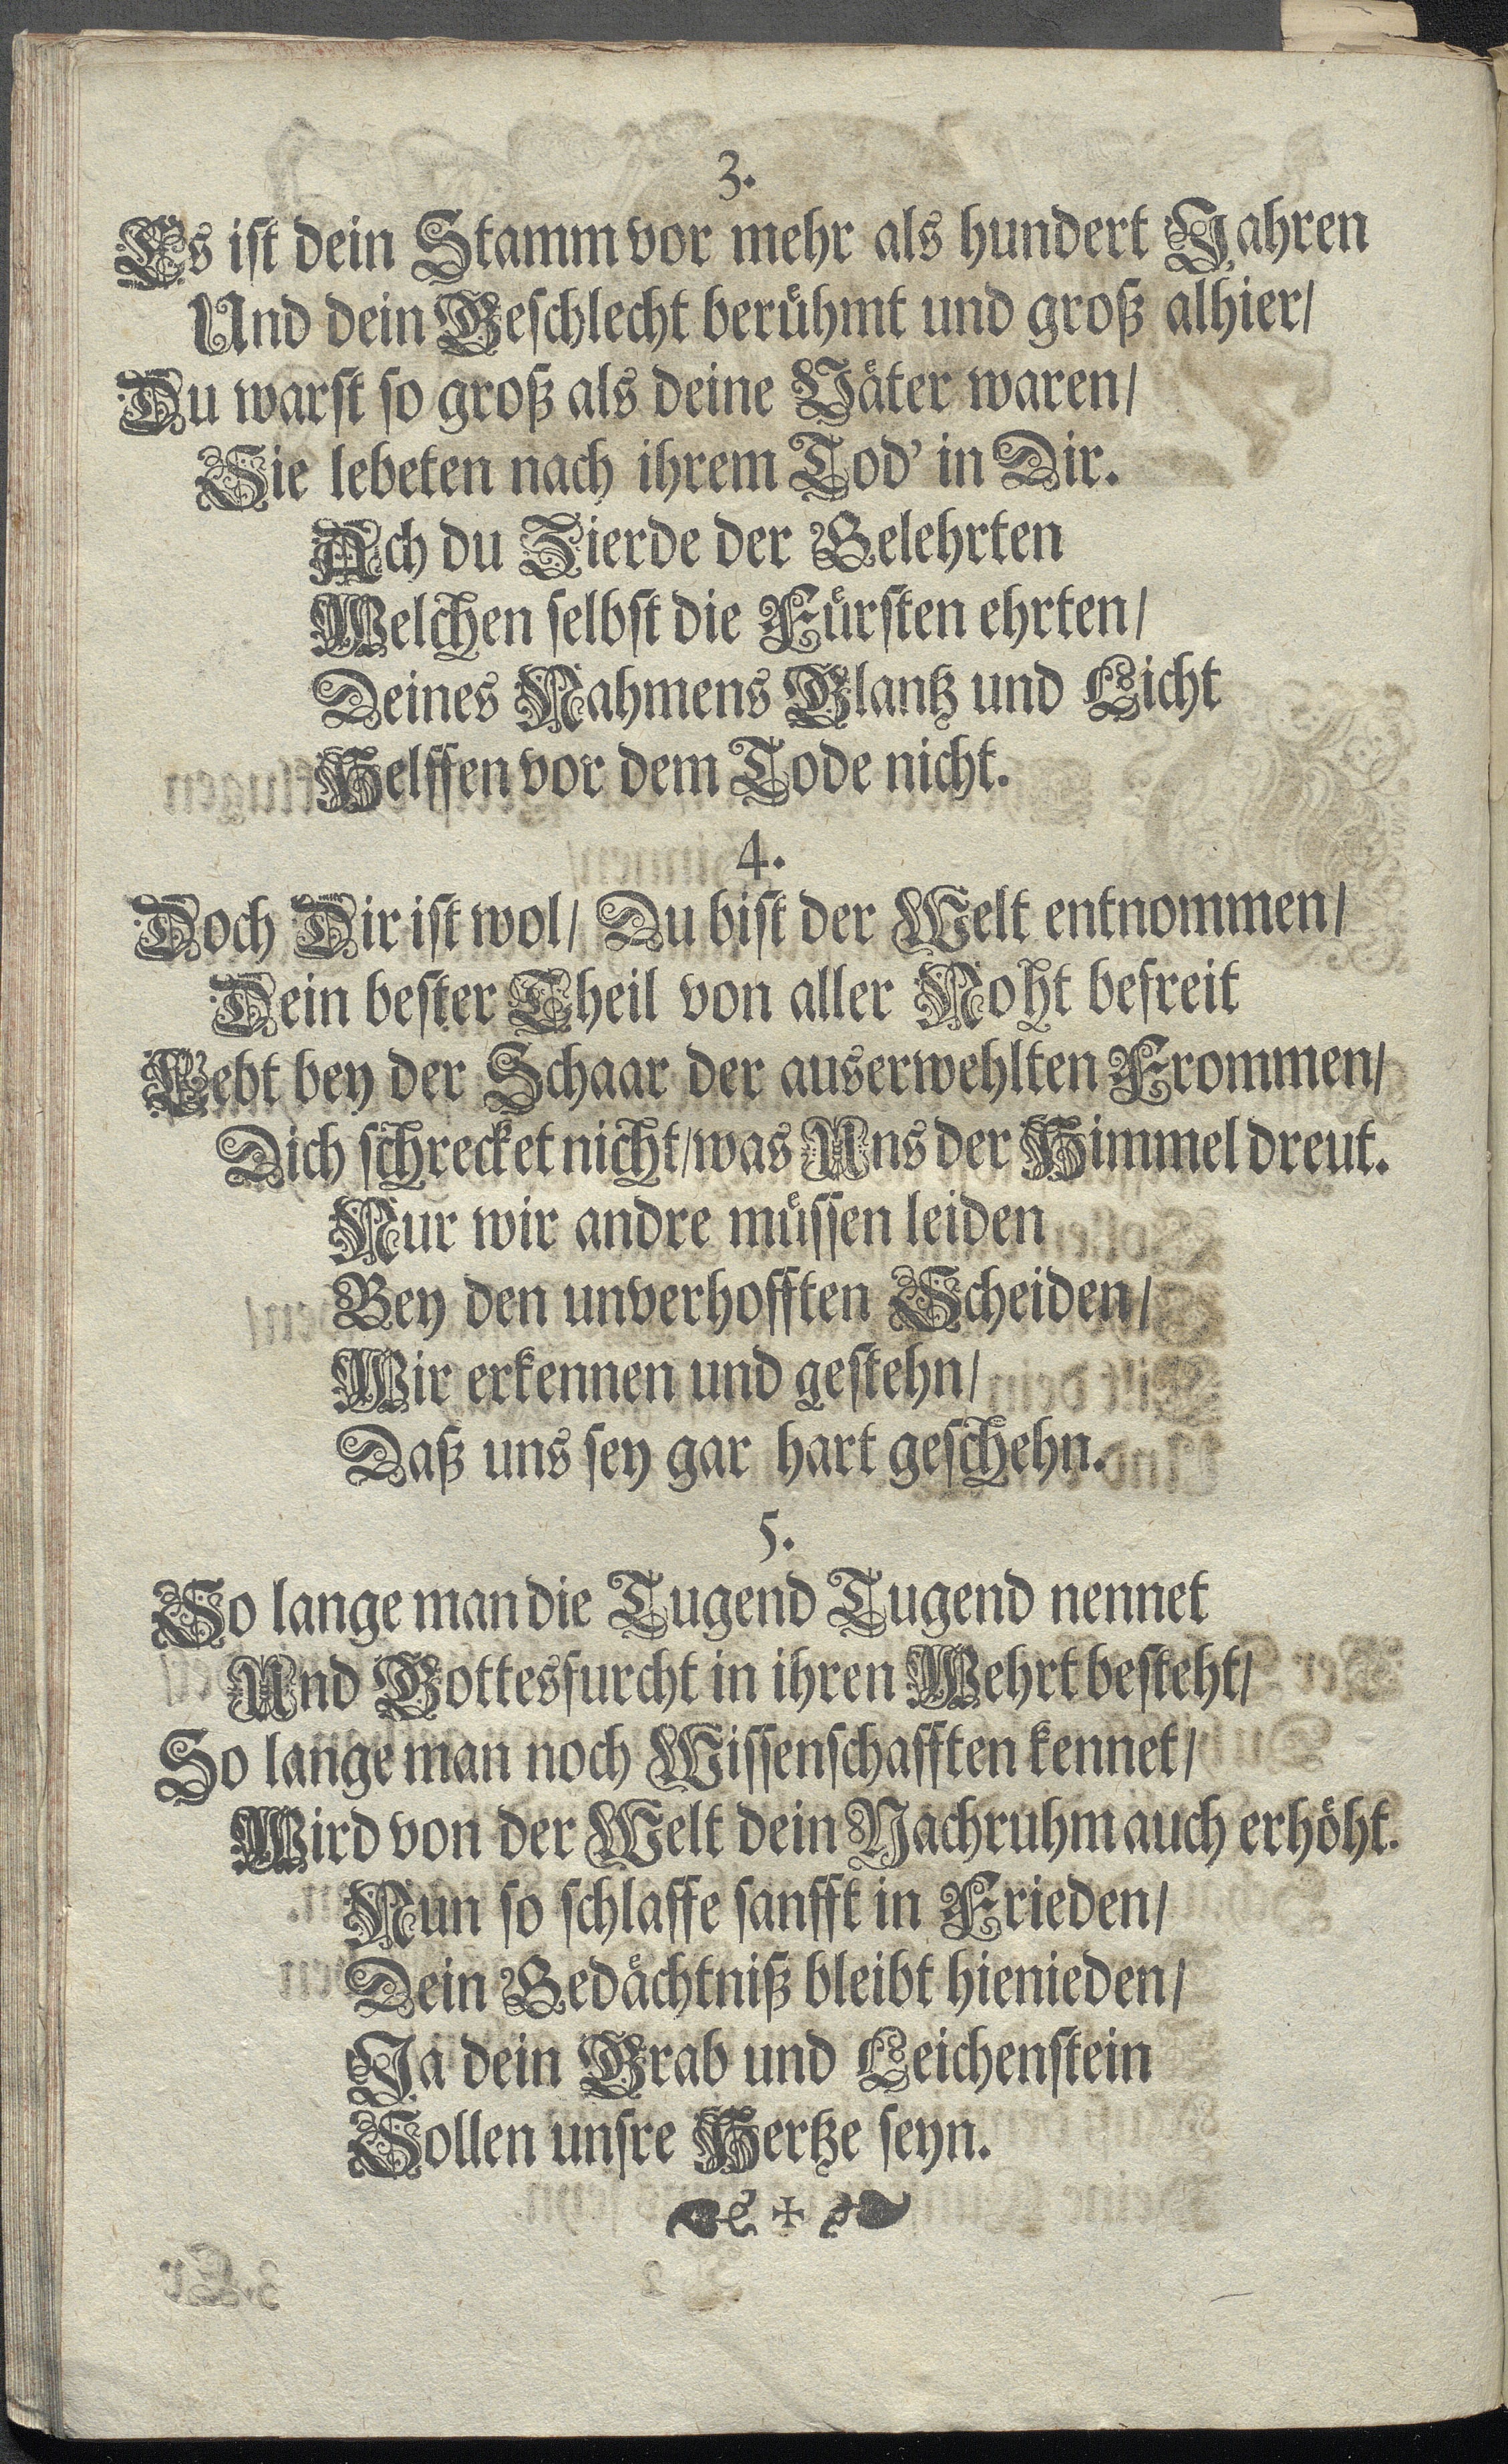 3.
Es ist dein Stamm vor mehr als hundert Jahren
Und dein Geschlecht berühmt und groß alhier/
Du warst so groß als deine Väter waren/
Sie lebeten nach ihrem Tod' in Dir.
Ach du Zierde der Gelehrten
Welchen selbst die Fürsten ehrten/
Deines Nahmens Glantz und Licht
Helffen vor dem Tode nicht.
4.
Doch Dir ist wol/ Du bist der Welt entnommen/
Dein bester Theil von aller Noht befreit
Lebt bey der Schaar der auserwehlten Frommen/
Dich schrecket nicht/ was Uns der Himmel dreut.
Nur wir andre müssen leiden
Bey den unverhofften Scheiden/
Wir erkennen und gestehn/
Daß uns sey gar hart geschehn.
5.
So lange man die Tugend Tugend nennet
Und Gottesfurcht in ihren Wehrt besteht/
So lange man noch Wissenschafften kennet/
Wird von der Welt dein Nachruhm auch erhöht.
Nun so schlaffe sanfft in Frieden/
Dein Gedächtniß bleibt hienieden/
Ja dein Grab und Leichenstein
Sollen unsre Hertze seyn.